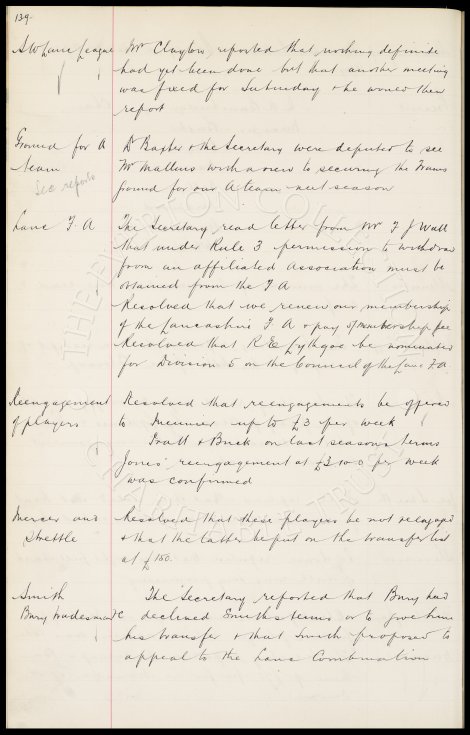 139
S W Lanc League Mr Clayton reported that nothing definite
had yet been done but that another meeting
was fixed for Saturday & he would then
report
Ground for A Dr Baxter & the Secretary were deputed to see
team Mr with a view to securing the Trams
See reports ground for our A team next season
Lanc F. A The Secretary read letter from Mr F J Wall
that under Rule 3 permission to withdraw
from an affiliated Association must be
obtained from the F A
Resolved that we renew our membership
of the Lancashire F A & pay membership fee
Resolved that R E Lythgoe be nominated
for Division 5 on the Council of the Lanc F.A.
Reengagement Resolved that reengagements be offered
of players to up to £3 per week
Pratt & Buck on last seasons terms
Jones' reengagement at £3 10 0 per week
was confirmed
Mercer and Resolved that these players be not reengaged
Strettle & that the latter be put on the transfer list
at £150.
Smith The Secretary reported that Bury had
Bury declined Smiths terms or to give him
his transfer & that Smith proposed to
appeal to the Lanc Combination
THE EVERTON COLLECTION
CHARITABLE TRUST